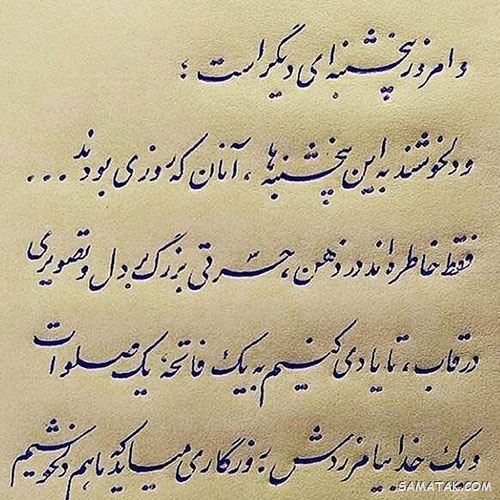 و امروز پنجشنبه ای دیگر است ؛
و دلخوشند به این پنجشنبه ها ، آنان که روزی بودند ...
فقط خاطره اند در ذهن ، حسرتی بزرگ بر دل و تصویری
در قاب ، تا یادی کنیم به یک فاتحه یک صلوات
و یک خدا بیامرزدش روزگاری میاید که ما هم دلخوشیم
SAMATAK.COM